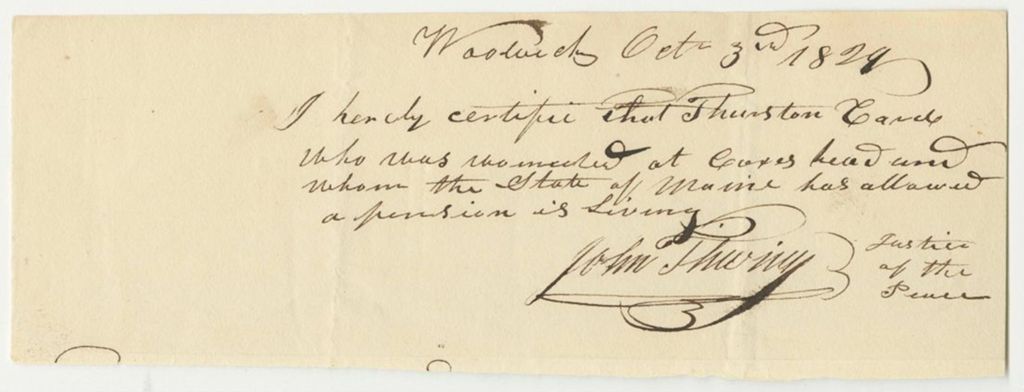 Woolwich Octr 3rd 1829
I hereby certifie that Thurston Card
who was wounded at Coxes head and
whom the State of Maine has allowed
a pension is Living
John Thwing Justice
of the
Peace